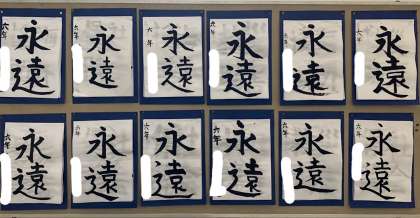 六年 永遠
六年 永遠
六年 永遠
六年 永遠
六年 永遠
六年 永遠
六年 永遠
六年 永遠
六年 永遠
六年 永遠
六年 永遠
六年 永遠